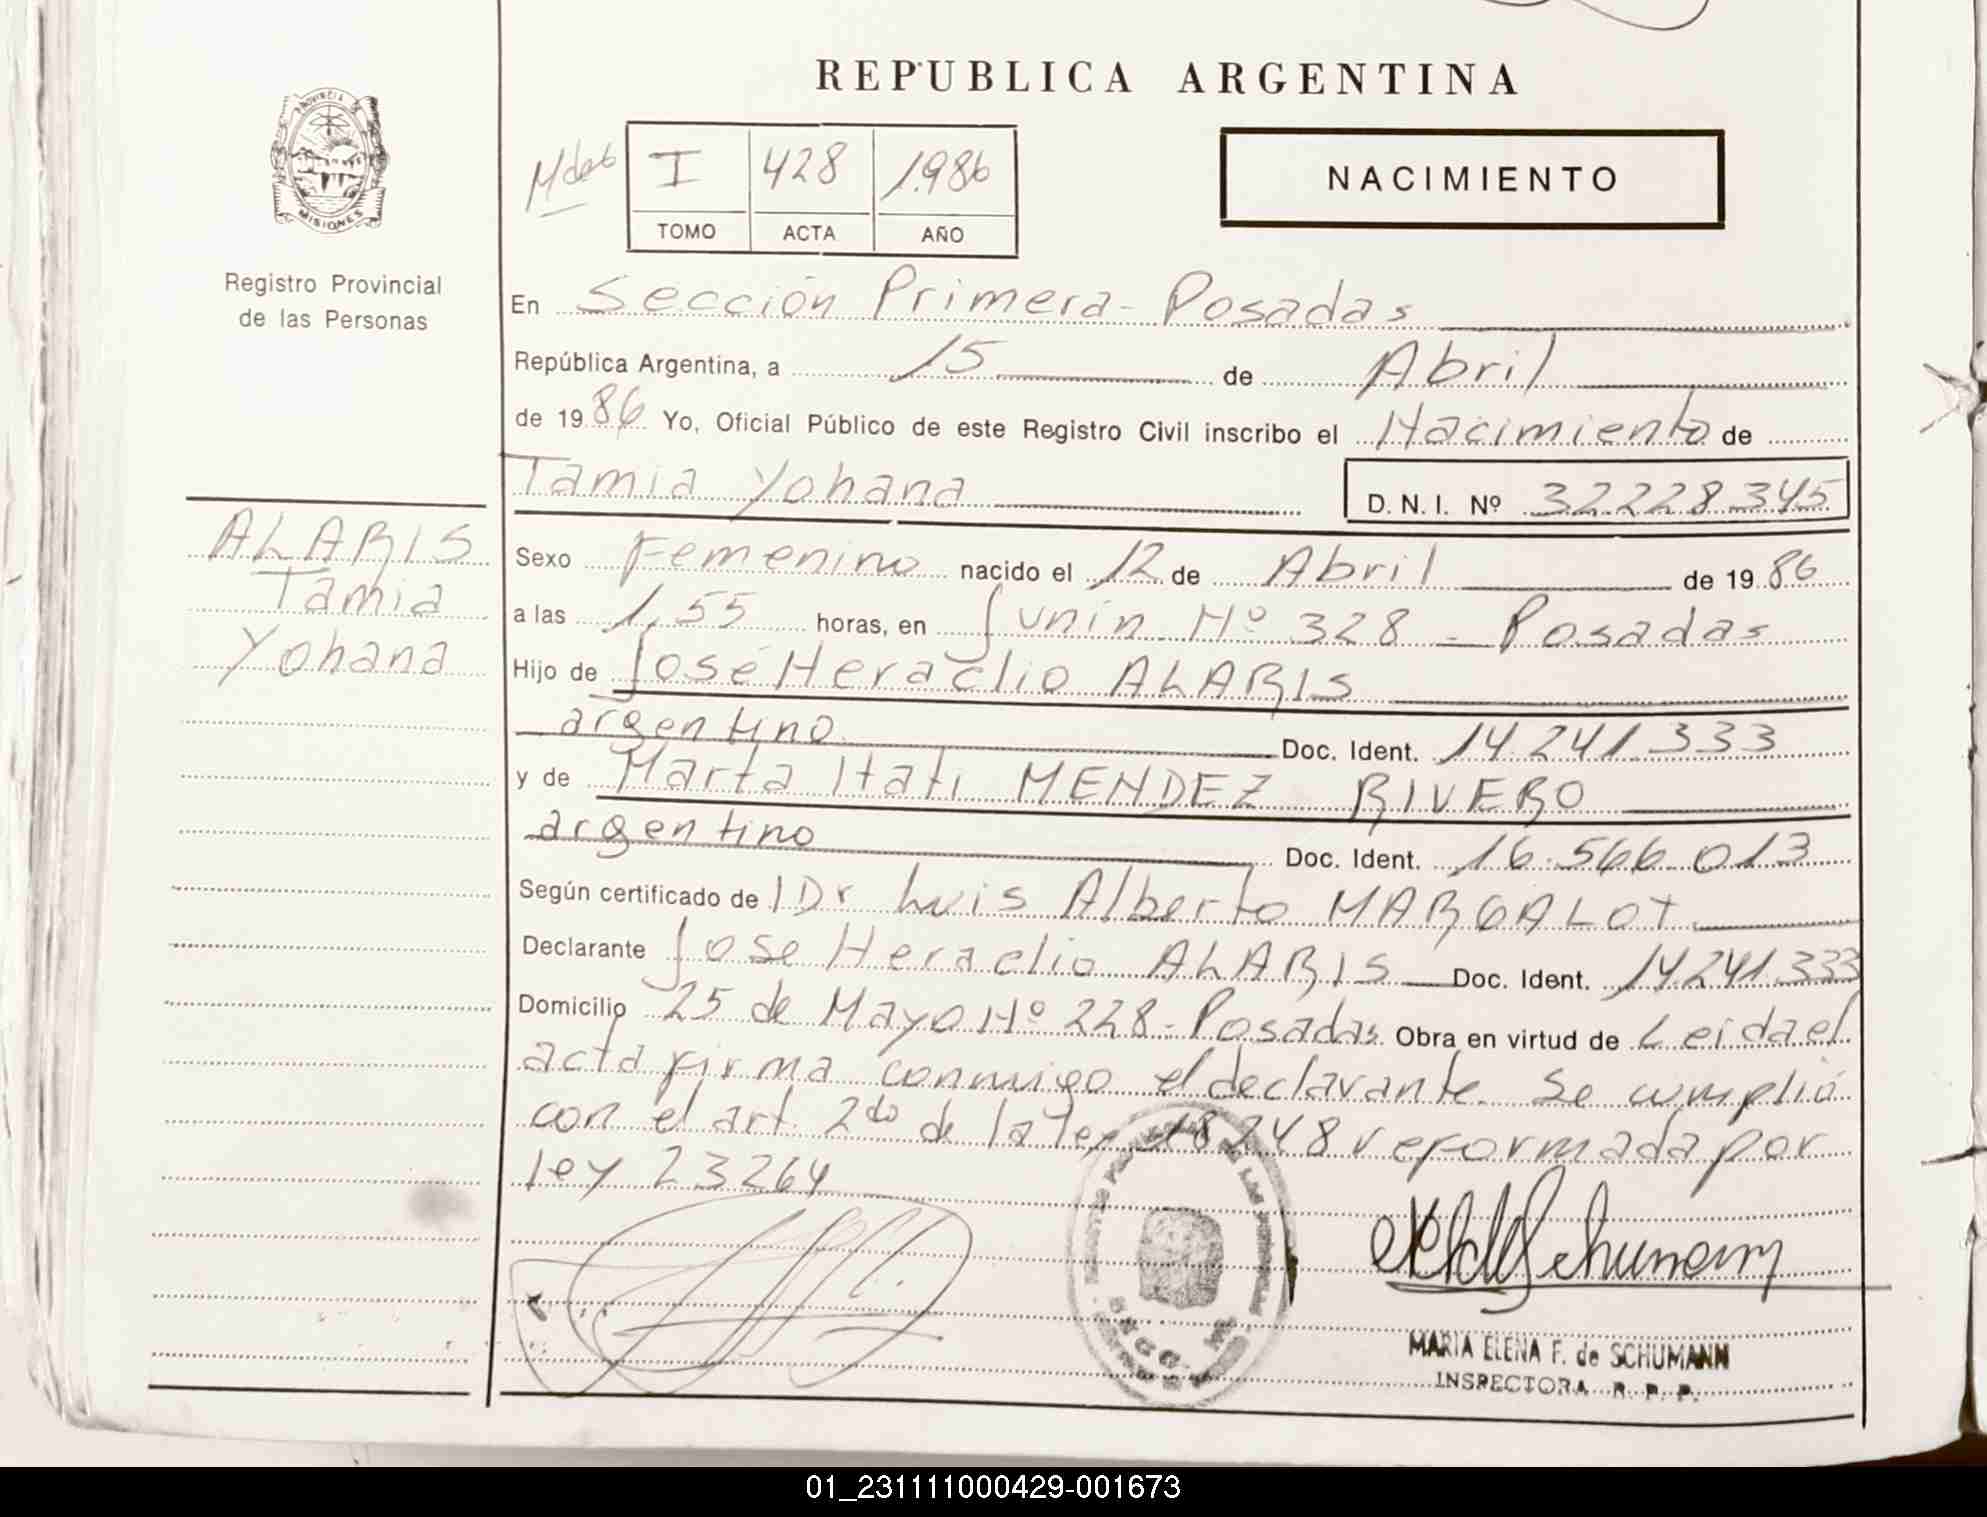 REPUBLICA ARGENTINA
PROVINCIA DE
MISIONES
Registro Provincial
de las Personas
I 428 1.986
TOMO ACTA AÑO
NACIMIENTO
En Sección Primera - Posadas
República Argentina, a 15 de Abril
de 1986 Yo, Oficial Público de este Registro Civil inscribo el Nacimiento de
Tamia Yohana D. N. I. Nº 32228345
ALARIS
Tamia
Yohana
Sexo Femenino nacido el 12 de Abril de 1986
a las 1,55 horas, en Junin Nº 328 - Posadas
Hijo de José Heraclio ALARIS
argentino Doc. Ident. 14.241.333
y de Marta Itati MENDEZ RIVERO
argentino Doc. Ident. 16.566.013
Según certificado de l Dr Luis Alberto MARGALOT
Declarante Jose Heraclio ALARIS Doc. Ident. 14.241.333
Domicilio 25 de Mayo Nº 228 - Posadas Obra en virtud de Leida el
acta firma conmigo el declarante. Se cumplió
con el art. 2do de la ley 18248 reformada por
ley 23264
MARIA ELENA F. de SCHUMANN
INSPECTORA R. P. P.
01_231111000429-001673